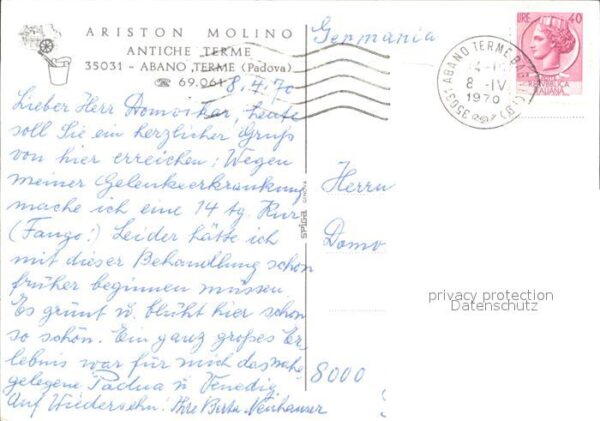 ARISTON MOLINO
ANTICHE TERME
35031 - ABANO TERME (Padova)
☎ 69.061
8.4.70
Lieber Herr Domovikar, heute
soll Sie ein herzlicher Gruß
von hier erreichen! Wegen
meiner Gelenkerkrankung
mache ich eine 14 tg. Kur
(Fango!) Leider hätte ich
mit dieser Behandlung schon
früher beginnen müssen.
Es grünt u. blüht hier schon
so schön. Ein ganz großes Er
lebnis war für mich das nahe
gelegene Padua u Venedig
Auf Wiedersehn! Ihre Berta Neuhauser
SPIGA GENOVA
Germania
LIRE 40
REPUBBLICA
ITALIANA
35031 ABANO TERME
8 -IV
1970
Herrn
Domo
privacy protection
Datenschutz
8000